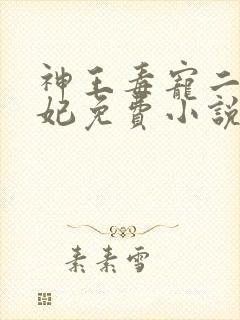 神王毒寵二
妃免費小說
素素雪